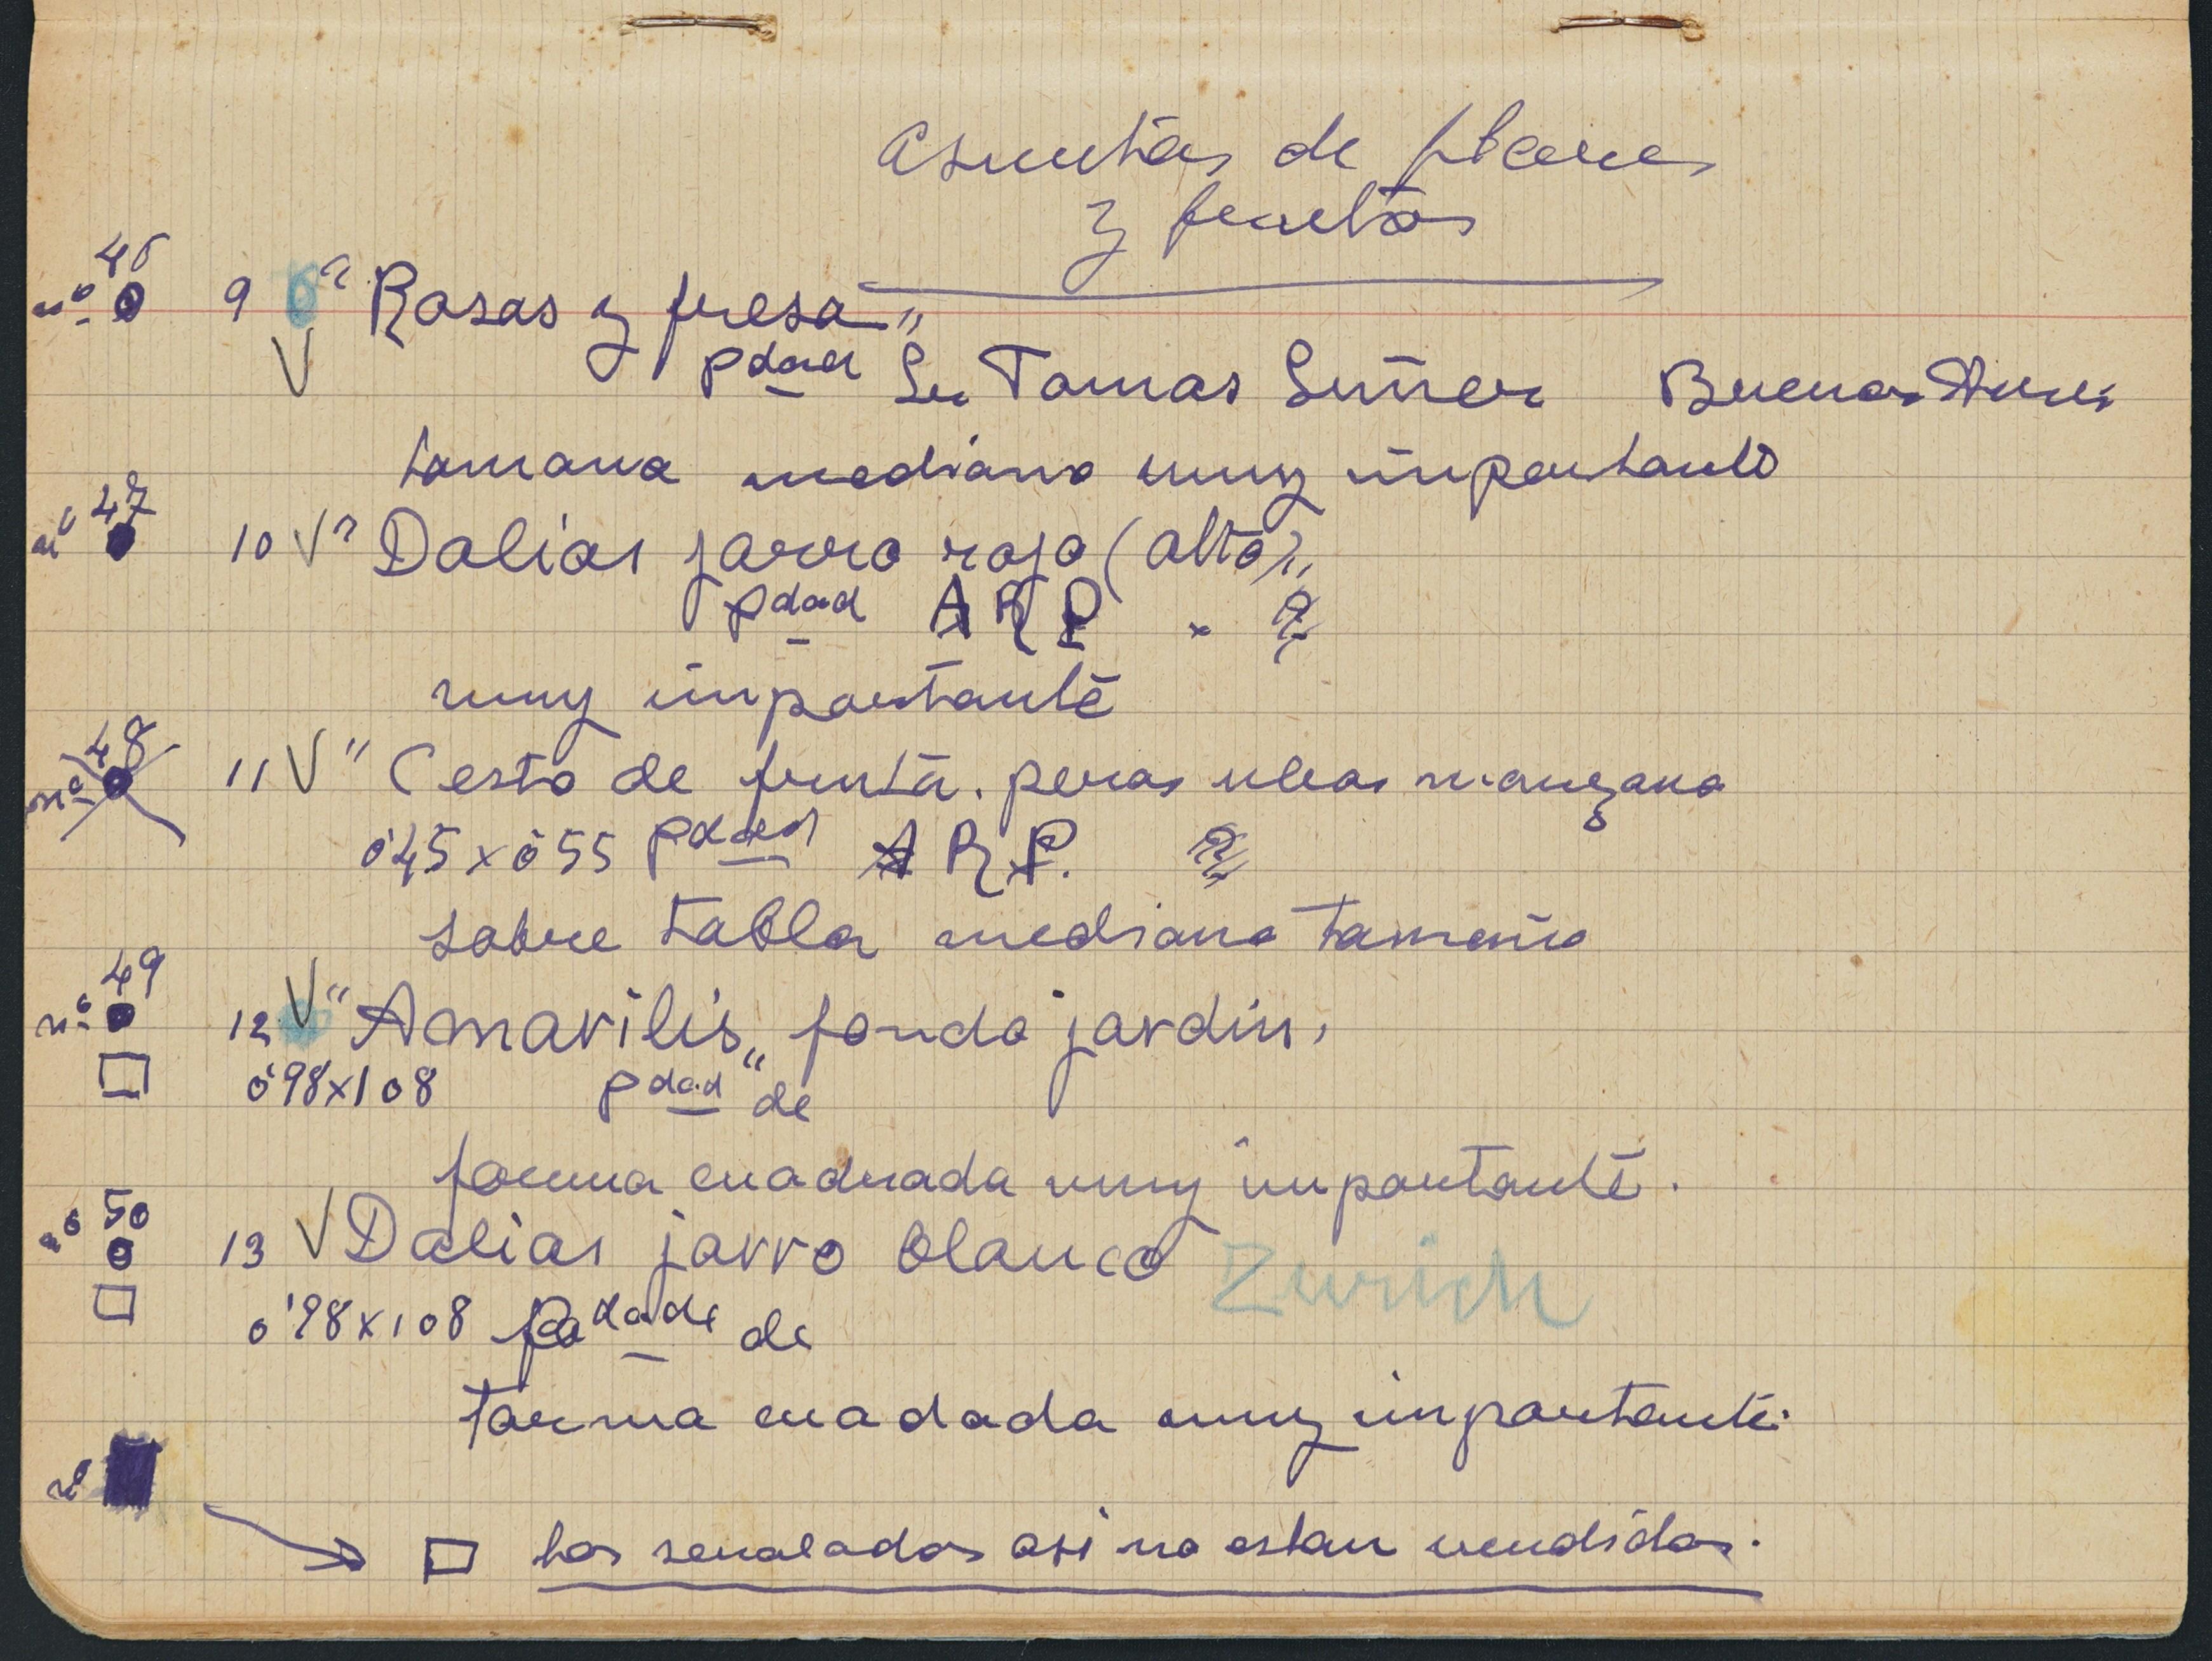 Asuntos de flores
y frutas
nº 46 9 " Rosas y fresa "
V pdad Sr Tomas Suñer Buenos Aires
tamaña mediano muy importante
nº 47 10 V " Dalias jarro rojo (alto) "
pdad A R P
muy importante
nº 48 11 V " Cesto de fruta. peras uvas manzana
0'45 x 0'55 pdad A R P.
sobre tabla mediano tamaño
nº 49 12 V " Amarilis " fondo jardin,
0'98 x 1 08 pdad " de
forma cuadrada muy importante.
nº 50 13 V Dalias jarro blanco Zurich
0'98 x 1 08 de
forma cuadada muy importante.
nº
los senalados asi no estan vendidos.